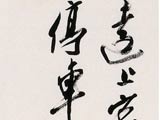 遠上寒
停車